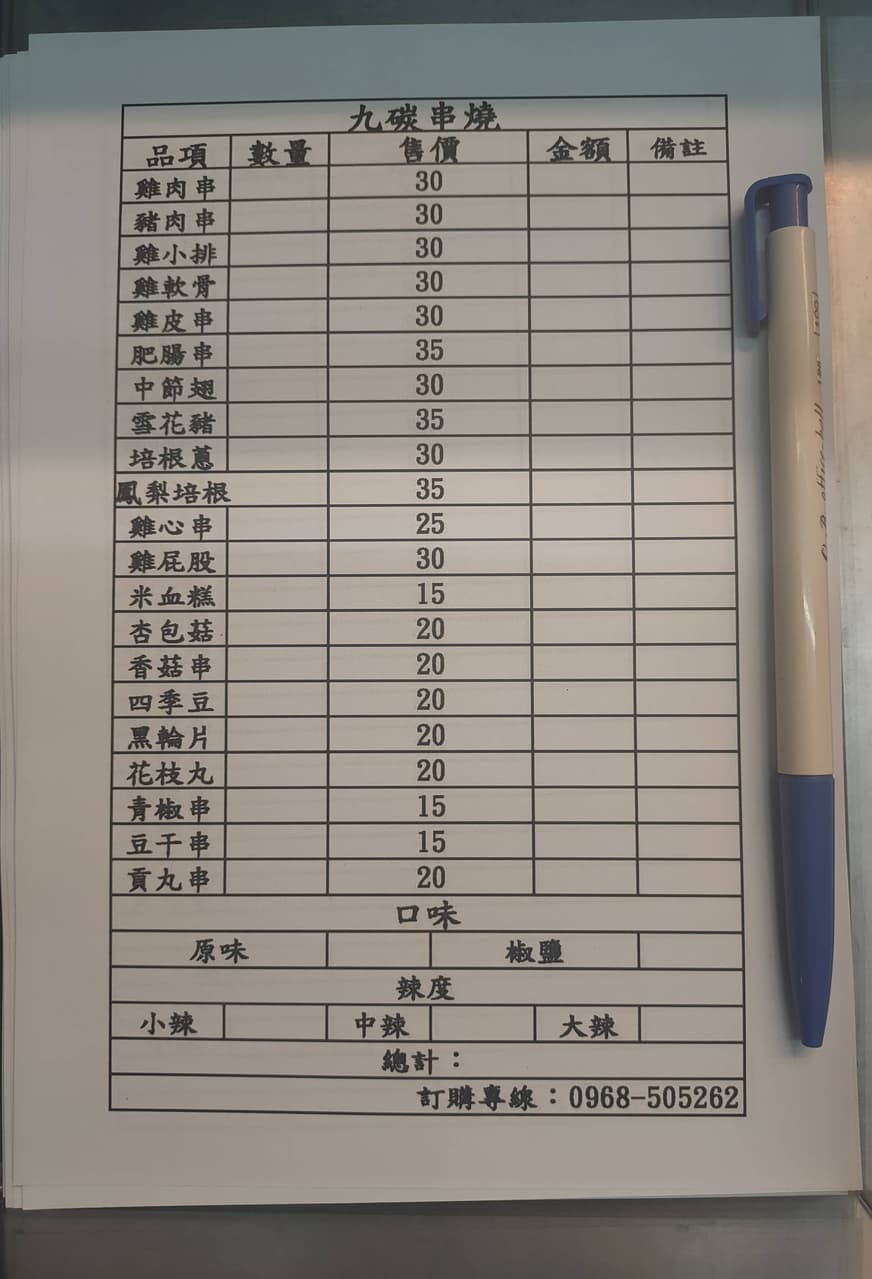 九碳串燒
品項 數量 售價 金額 備註
雞肉串 30
豬肉串 30
雞小排 30
雞軟骨 30
雞皮串 30
肥腸串 35
中節翅 30
雪花豬 35
培根蔥 30
鳳梨培根 35
雞心串 25
雞屁股 30
米血糕 15
杏包菇 20
香菇串 20
四季豆 20
黑輪片 20
花枝丸 20
青椒串 15
豆干串 15
貢丸串 20
口味
原味 椒鹽
辣度
小辣 中辣 大辣
總計：
訂購專線：0968-505262